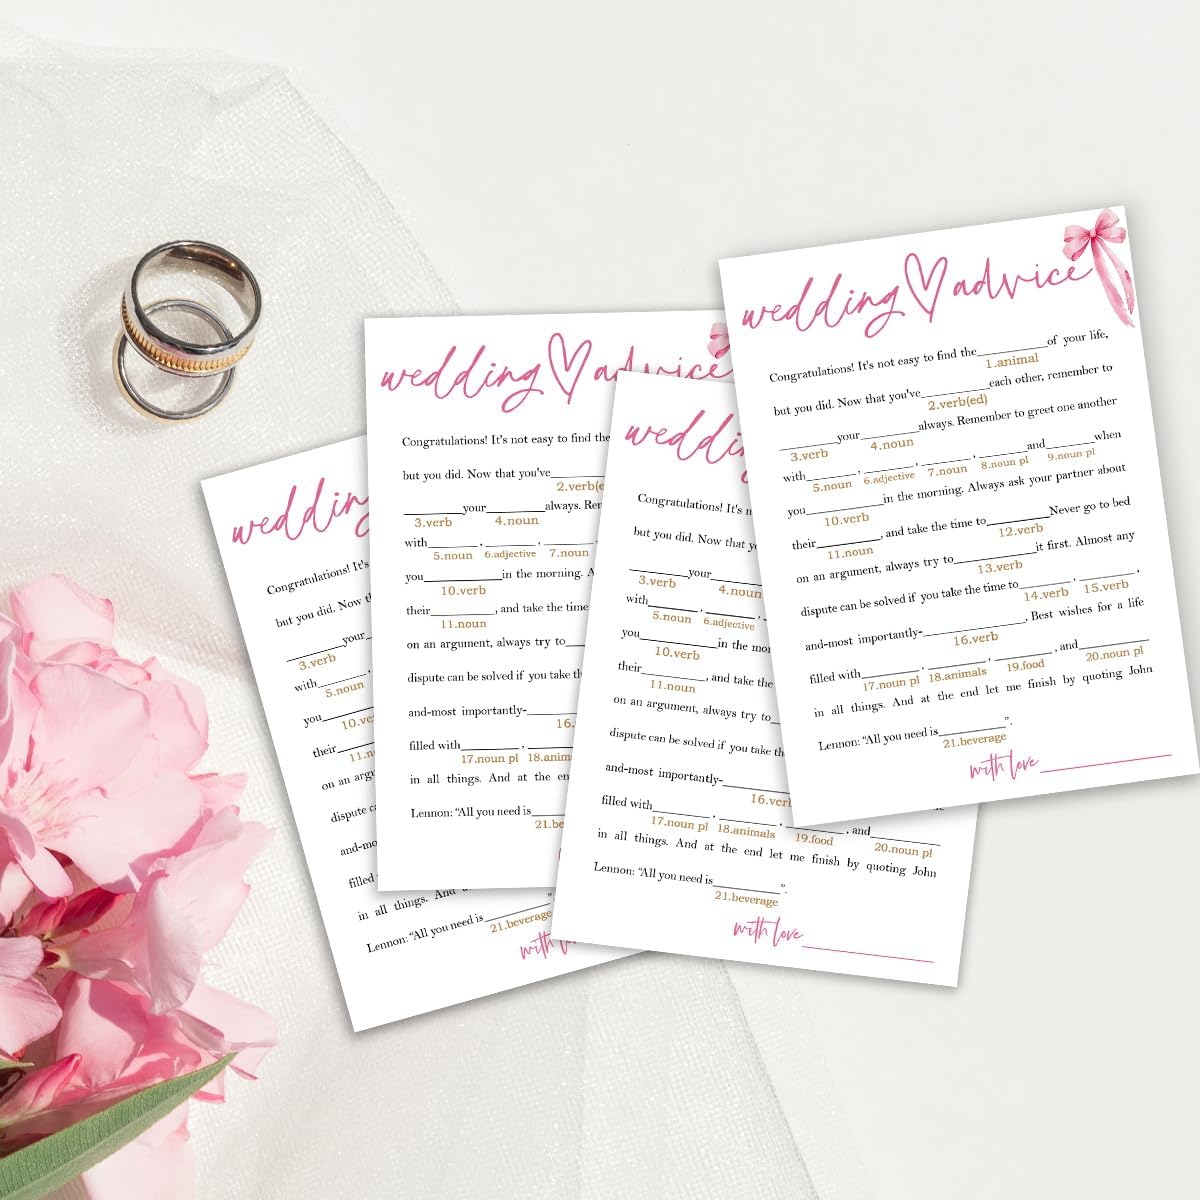 wedding
Congratulations! It's
but you did. Now
your
3.verb
with ,
5.noun
you
their
on an
in all things. And
Lennon: “All you need is ”
21.beverage
with
wedding ♡ advice
Congratulations! It's not easy to find the
but you did. Now that you've
2.verb(e
your always.
3.verb 4.noun
with , ,
5.noun 6.adjective 7.noun
you in the morning.
10.verb
their , and take the time
11.noun
on an argument, always try to
dispute can be solved if you take
and-most importantly-
16.
filled with ,
17.noun pl 18.anim
in all things. And at the
Lennon: “All you need is
21.be
Congratulations! It's
but you did. Now that
your
3.verb 4.noun
with , ,
5.noun 6.adjective
you in the
10.verb
their , and take the
11.noun
on an argument, always try to
dispute can be solved if you take
and-most importantly-
16.verb
filled with , , , and
17.noun pl 18.animals 19.food 20.noun pl
in all things. And at the end let me finish by quoting John
Lennon: “All you need is ”.
21.beverage
with love
wedding ♡ advice
Congratulations! It's not easy to find the of your life,
1.animal
but you did. Now that you've each other, remember to
2.verb(ed)
your always. Remember to greet one another
3.verb 4.noun
with , , , and when
5.noun 6.adjective 7.noun 8.noun pl 9.noun pl
you in the morning. Always ask your partner about
10.verb
their , and take the time to Never go to bed
11.noun 12.verb
on an argument, always try to it first. Almost any
13.verb
dispute can be solved if you take the time to , ,
14.verb 15.verb
and-most importantly- . Best wishes for a life
16.verb
filled with , , , and
17.noun pl 18.animals 19.food 20.noun pl
in all things. And at the end let me finish by quoting John
Lennon: “All you need is ”.
21.beverage
with love